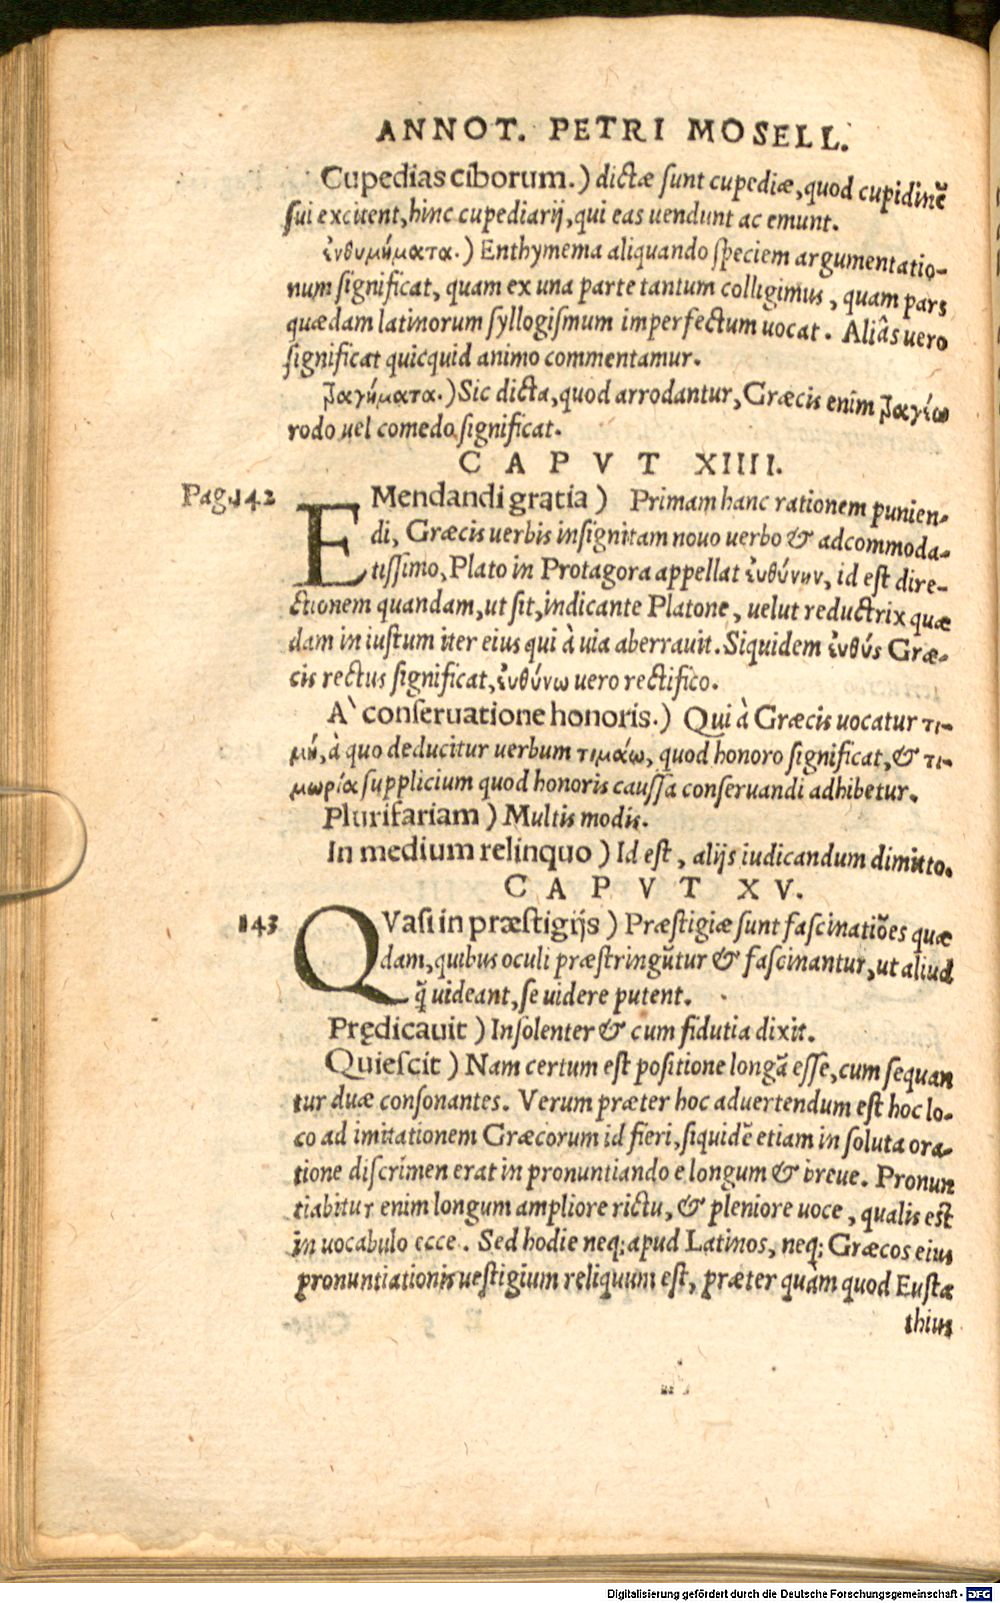 ANNOT. PETRI MOSELL.
Cupedias ciborum.) dictæ sunt cupediæ, quod cupidinē
sui excitent, hinc cupediarij, qui eas uendunt ac emunt.
ἐνθυμήματα.) Enthymema aliquando speciem argumentatio-
num significat, quam ex una parte tantum colligimus, quam pars
quædam latinorum syllogismum imperfectum uocat. Aliâs uero
significat quicquid animo commentamur.
τραγήματα.) Sic dicta, quod arrodantur, Græcis enim τραγέω
rodo uel comedo significat.
CAPVT XIIII.
Pag. 142
EMendandi gratia) Primam hanc rationem punien-
di, Græcis uerbis insignitam nouo uerbo & adcommoda-
tissimo, Plato in Protagora appellat ἐυθύνην, id est dire-
ctionem quandam, ut sit, indicante Platone, uelut reductrix quæ
dam in iustum iter eius qui à uia aberrauit. Siquidem ἐυθύς Græ-
cis rectus significat, ἐυθύνω uero rectifico.
A` conseruatione honoris.) Qui à Græcis uocatur τι-
μή, à quo deducitur uerbum τιμάω, quod honoro significat, & τι-
μωρία supplicium quod honoris caussa conseruandi adhibetur.
Plurifariam) Multis modis.
In medium relinquo) Id est, alijs iudicandum dimitto.
CAPVT XV.
143
QVasi in præstigijs) Præstigiæ sunt fascinatiões quæ
dam, quibus oculi præstringūtur & fascinantur, ut aliud
q̃ uideant, se uidere putent.
Prędicauit) Insolenter & cum fidutia dixit.
Quiescit) Nam certum est positione longā esse, cum sequan
tur duæ consonantes. Verum præter hoc aduertendum est hoc lo-
co ad imitationem Græcorum id fieri, siquidē etiam in soluta ora-
tione discrimen erat in pronuntiando e longum & breue. Pronun
tiabitur enim longum ampliore rictu, & pleniore uoce, qualis est
in uocabulo ecce. Sed hodie neq; apud Latinos, neq; Græcos eius
pronuntiationis uestigium reliquum est, præter quàm quod Eustæ
thius
Digitalisierung gefördert durch die Deutsche Forschungsgemeinschaft - DFG